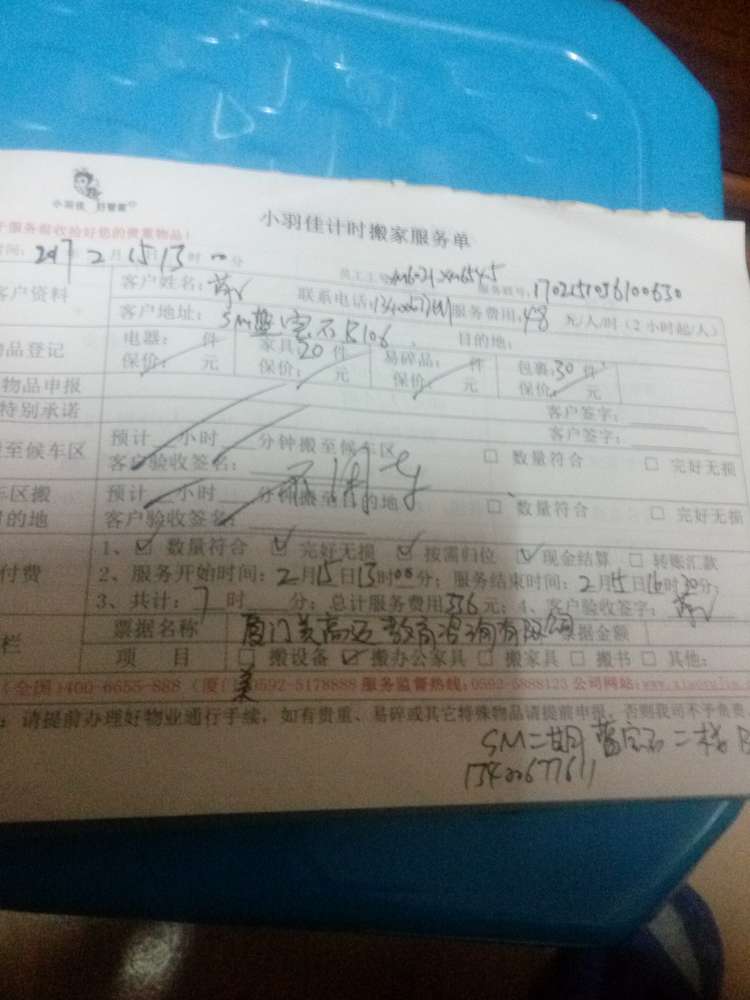 小羽佳 好管家
小羽佳计时搬家服务单
服务前收拾好您的贵重物品!
间: 2017年2月15日13时00分
员工工号 服务联号: 1702151056100630
客户资料 客户姓名: 联系电话: 服务费用: 48元/人/时(2小时起/人)
客户地址: SM蓝宝石B106 目的地:
品登记 电器: 件 家具20件 易碎品: 件 包裹:30件
保价: 元 保价: 元 保价: 元 保价: 元
物品申报 客户签字:
特别承诺 客户签字:
至候车区 预计 小时 分钟搬至候车区 □ 数量符合 □ 完好无损
客户验收签名:
车区搬 预计 小时 分钟搬至目的地 □ 数量符合 □ 完好无损
目的地 客户验收签名:
付费 1、☑ 数量符合 ☑ 完好无损 ☑ 按需归位 ☑ 现金结算 □ 转账汇款
2、服务开始时间: 2月15日13时00分; 服务结束时间: 2月15日16时30分
3、共计: 7时 分; 总计服务费用336元; 4、客户验收签字:
栏 票据名称 厦门美高 教育咨询有限公司 票据金额
项 目 □ 搬设备 ☑ 搬办公家具 □ 搬家具 □ 搬书 □ 其他:
(全国)400-6655-888 (厦门)0592-5178888 服务监督热线: 0592-5888123 公司网站:
: 请提前办理好物业通行手续, 如有贵重、易碎或其它特殊物品请提前申报, 否则我司不予负责
SM二期蓝宝石二栋B
13400677611